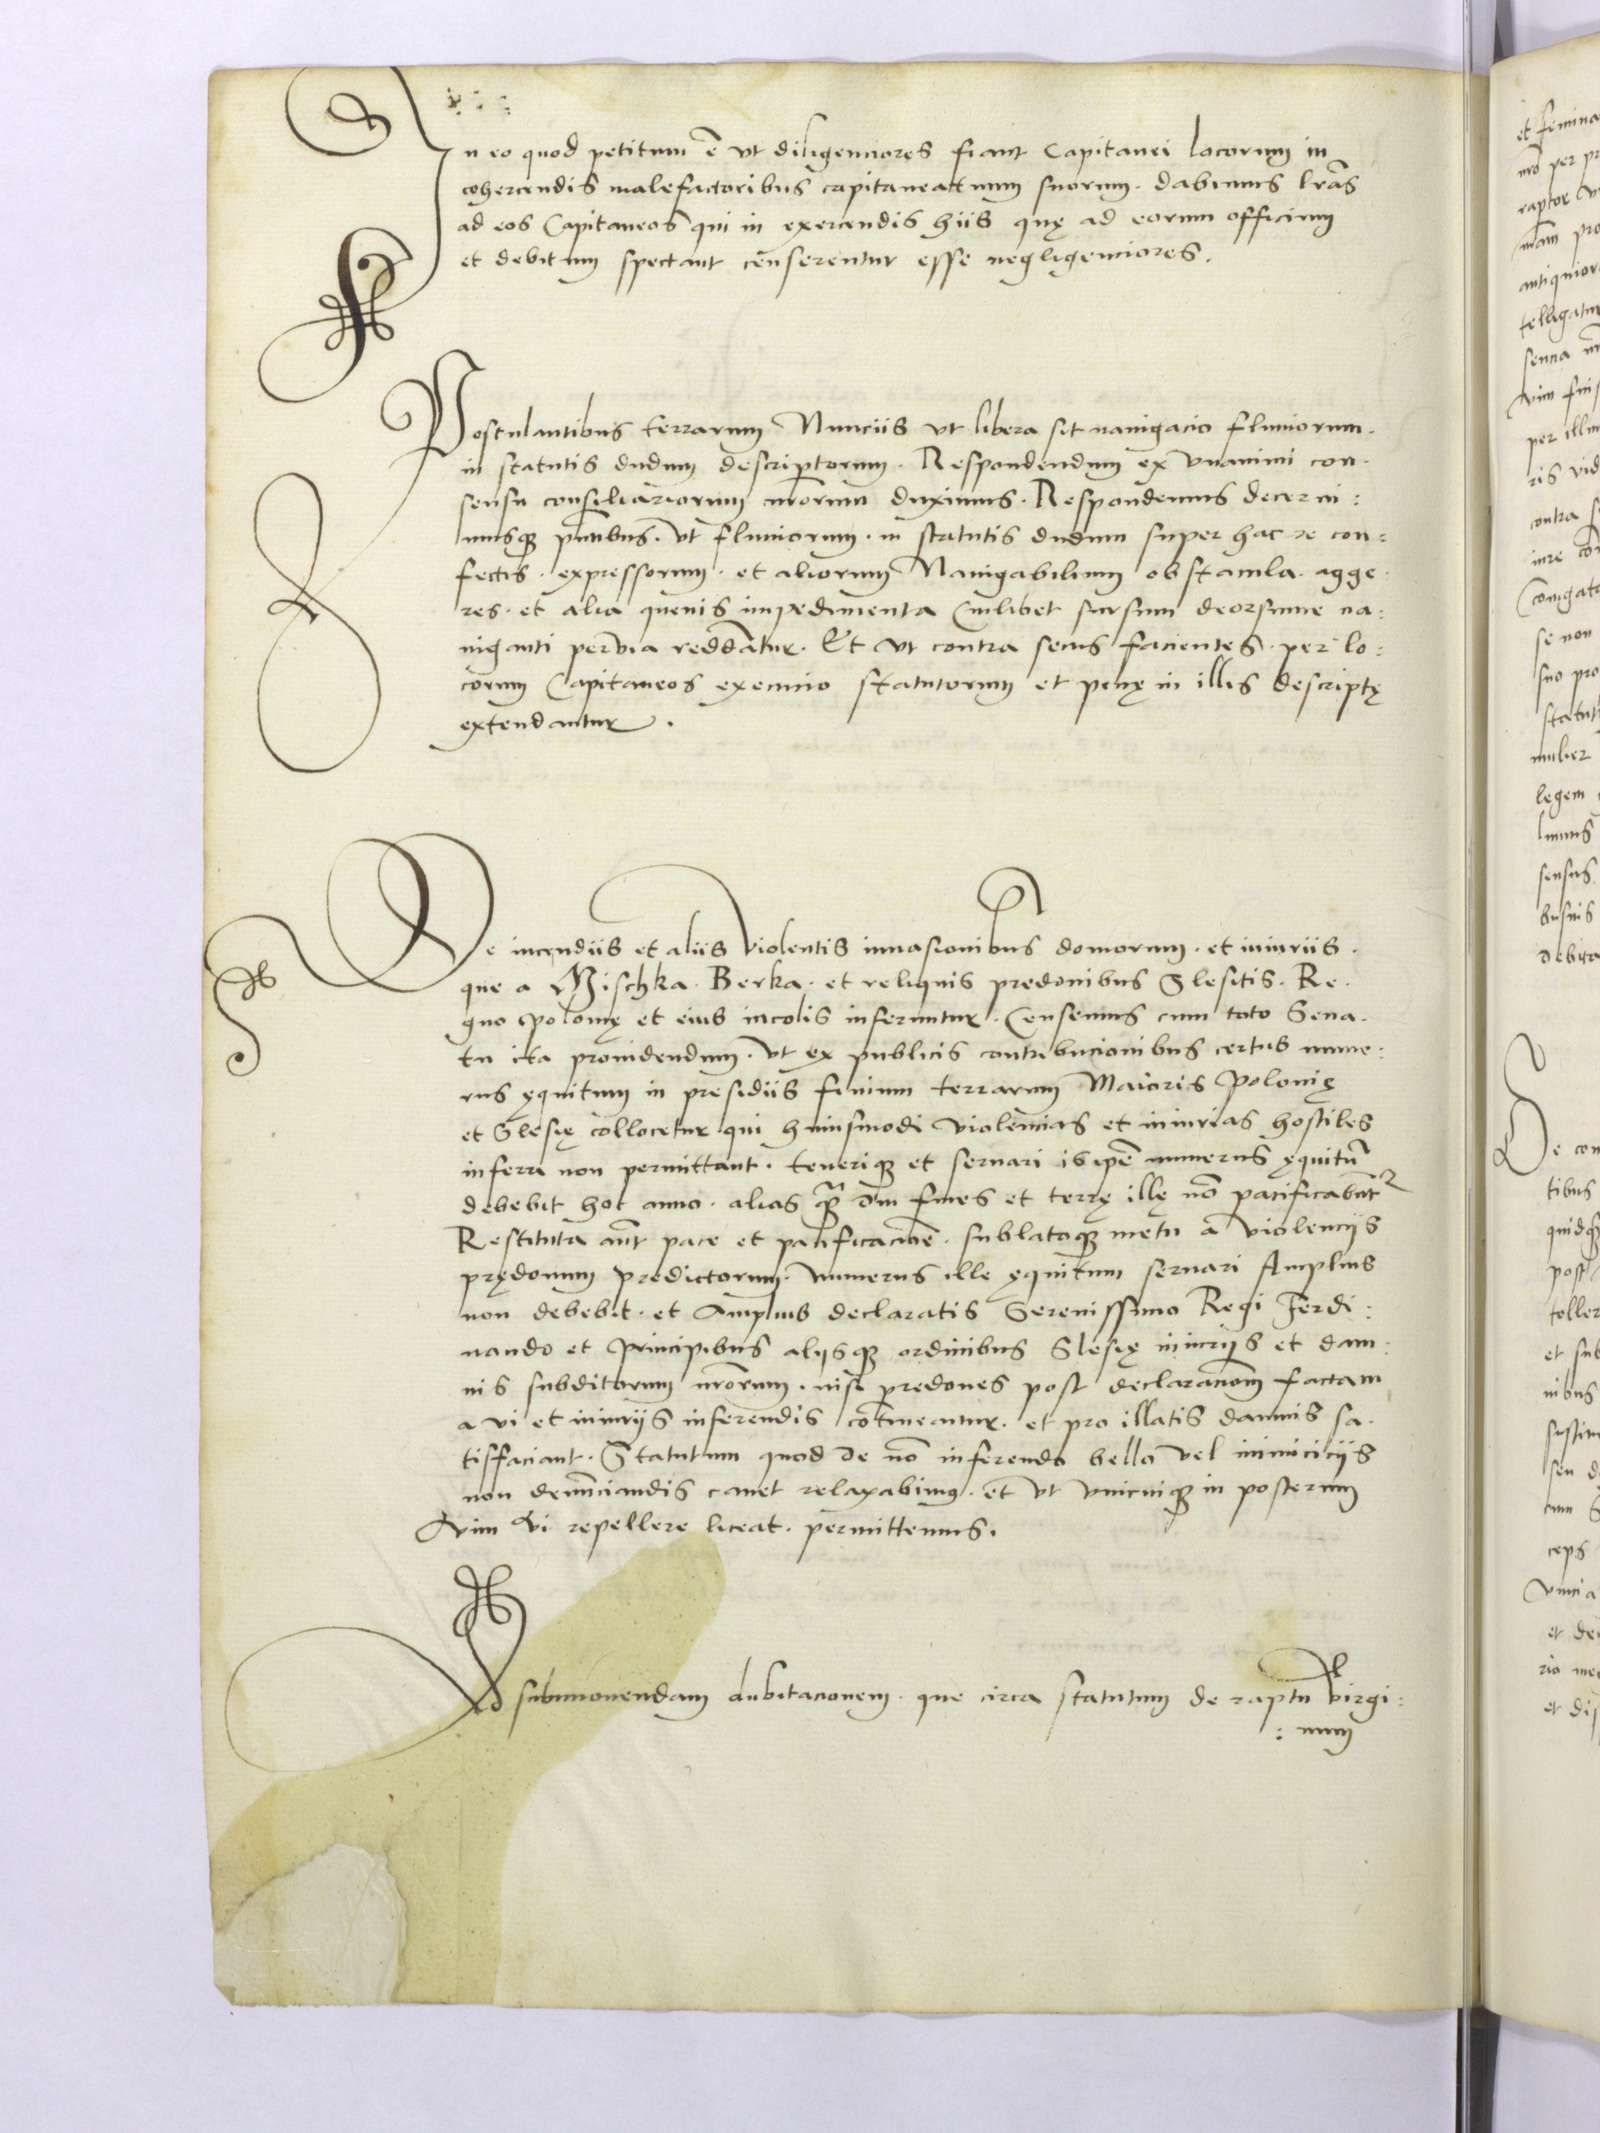 In eo quod petitum ē ut diligenciores fiant Capitanei locorum in
cohercendis malefactoribus capitaneatuum suorum. dabimus lr̄as
ad eos Capitaneos qui in exercendis hiis quę ad eorum officium
et debitum spectant censerentur esse negligenciores.
Postulantibus terrarum Nunciis ut libera sit navigacio fluviorum.
in statutis dudum descriptorum. Respondendum ex unanimi con.
sensu consiliariorum nr̄orum duximus. Respondemus decerni:
musq; pn̄tibus. ut fluviorum. in statutis dudum super hac re con:
fectis. expressorum. et aliorum Navigabilium obstacula. agge.
res. et alia quevis impedimenta Cuilibet sursum deorsumve na:
viganti pervia reddātur. Et ut contra secus facientes. per lo:
corum Capitaneos execucio statutorum et penę in illis descriptę
extendantur.
De incendiis et aliis violentis invasionibus domorum. et iniuriis.
que a Mischka. Berka. et reliquis predonibus Slesitis. Re.
gno Polonię et eius incolis inferuntur. Censemus cum toto Sena.
tu ita providendum. ut ex publicis contribucionibus certus nume:
rus ęquitum in presidiis finium terrarum Maioris Polonię
et Slesię collocetur qui huiusmodi violencias et iniurias hostiles
inferri non permittant. teneriq; et servari is ip̄e numerus ęquitū
debebit hoc anno. alias qr̄ dm̄ fines et terrę illę nō pacificabūtr
Restituta aūt pace et pacificacioē. sublatoq; metu a violenciis
prędonum predictorum. numerus ille ęquitum servari Amplius
non debebit. et Amplius declaratis Serenissimo Regi Ferdi:
nando et Principibus aliisq; ordinibus Slesię iniuriis et dam:
nis subditorum nr̄orum. nisi predones post declaracionem factam
a vi et iniuriis inferendis cōtineantur. et pro illatis damnis sa.
tisfaciant. Statutum quod de nō inferendo bello vel inimiciciis
non denūnciandis cavet relaxabimus. et ut unicuiq; in posterum
vim vi repellere liceat. permittemus.
Ad submovendam dubitacionem. que circa statutum de raptu virgi:
: num